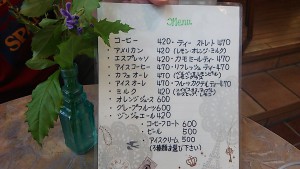 Menu
コーヒー 420・ティー ストレート 470
アメリカン 420 (レモン・オレンジ・ミルク)
エスプレッソ 420・カモミールティー 470
アイスコーヒー 470・リフレッシュティー 470
カフェオーレ 470
アイスオーレ 470・フルーツカクテルティー 470
ミルク 420
オレンジジュース 600
グレープフルーツ 600
ジンジャエール 420
・コーヒーフロート 600
・ビール 500
アイスクリーム 500